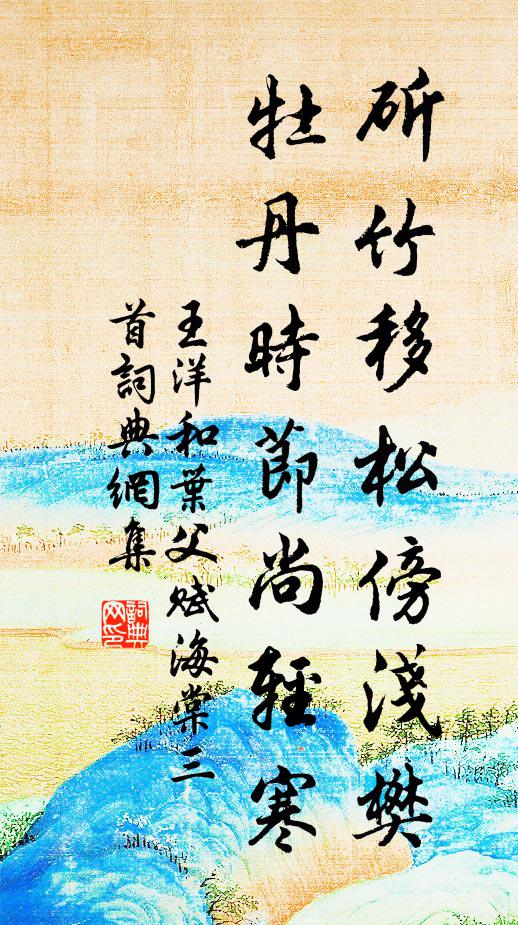 斫竹移松傍淺樊
牡丹時節尚輕寒
王洋和葉父賦海棠三
首詞典網集
詞典
网印